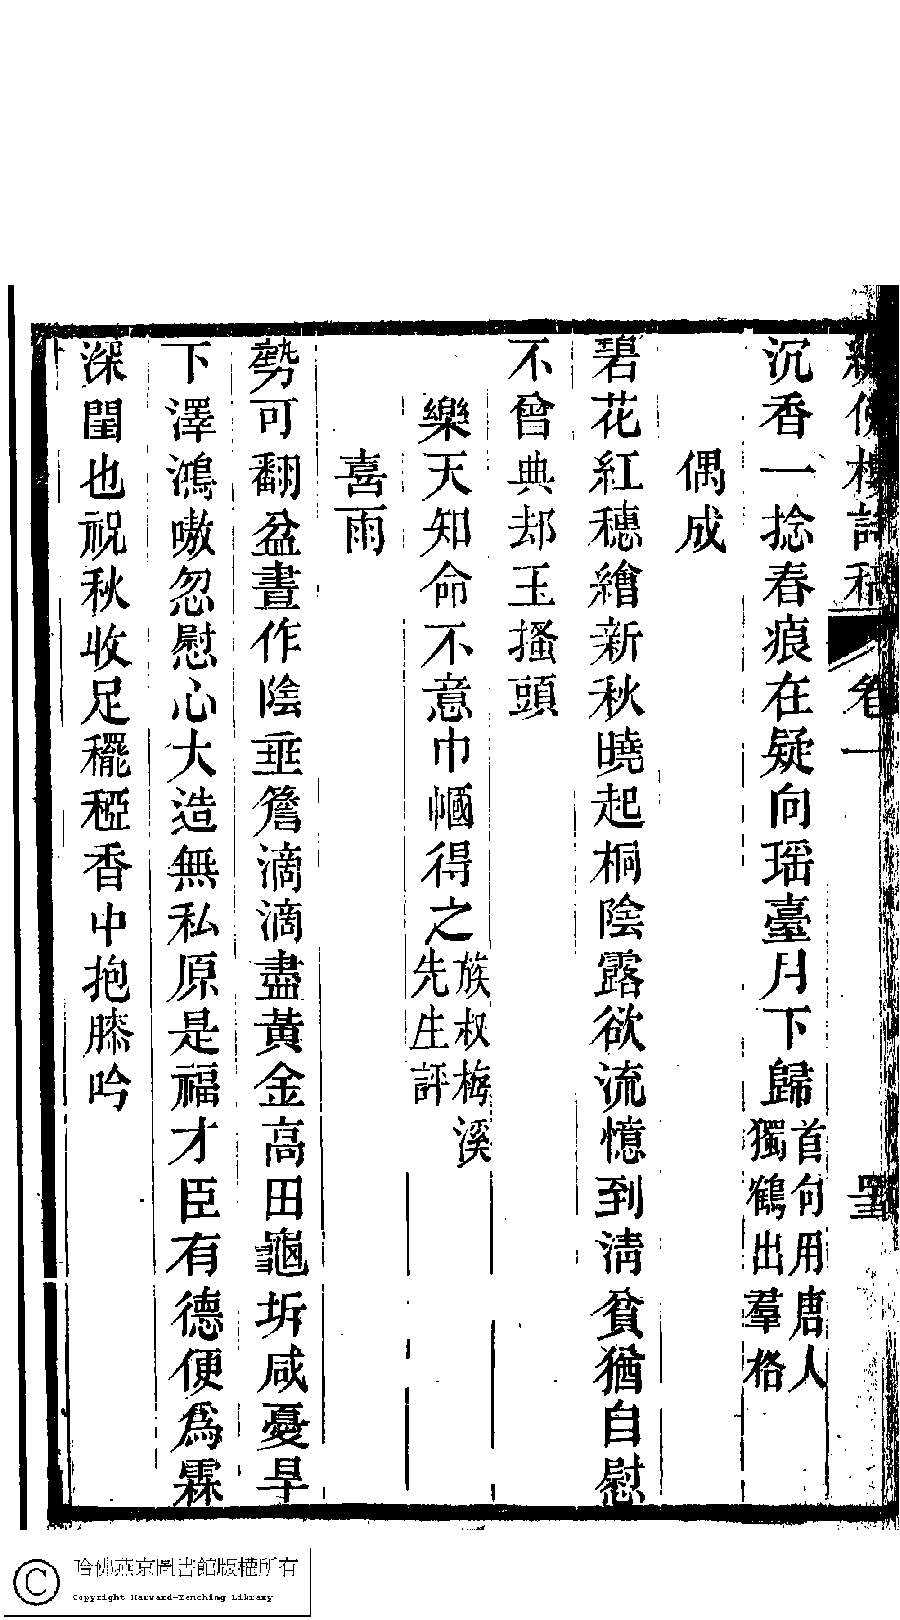 繡佛樓詩稿 卷一
沉香一捻春痕在疑向瑤臺月下歸 首句用唐人
獨鶴出羣格
偶成
碧花紅穗繪新秋曉起桐陰露欲流憶到淸貧猶自慰
不曾典却玉搔頭
樂天知命不意巾幗得之 族叔梅溪
先生評
喜雨
勢可翻盆晝作陰垂簷滴滴盡黃金高田龜坼咸憂旱
下澤鴻嗷忽慰心大造無私原是福才臣有德便爲霖
深閨也祝秋收足䆉稏香中抱膝吟
哈佛燕京圖書館版權所有
Copyright Harvard-Yenching Library